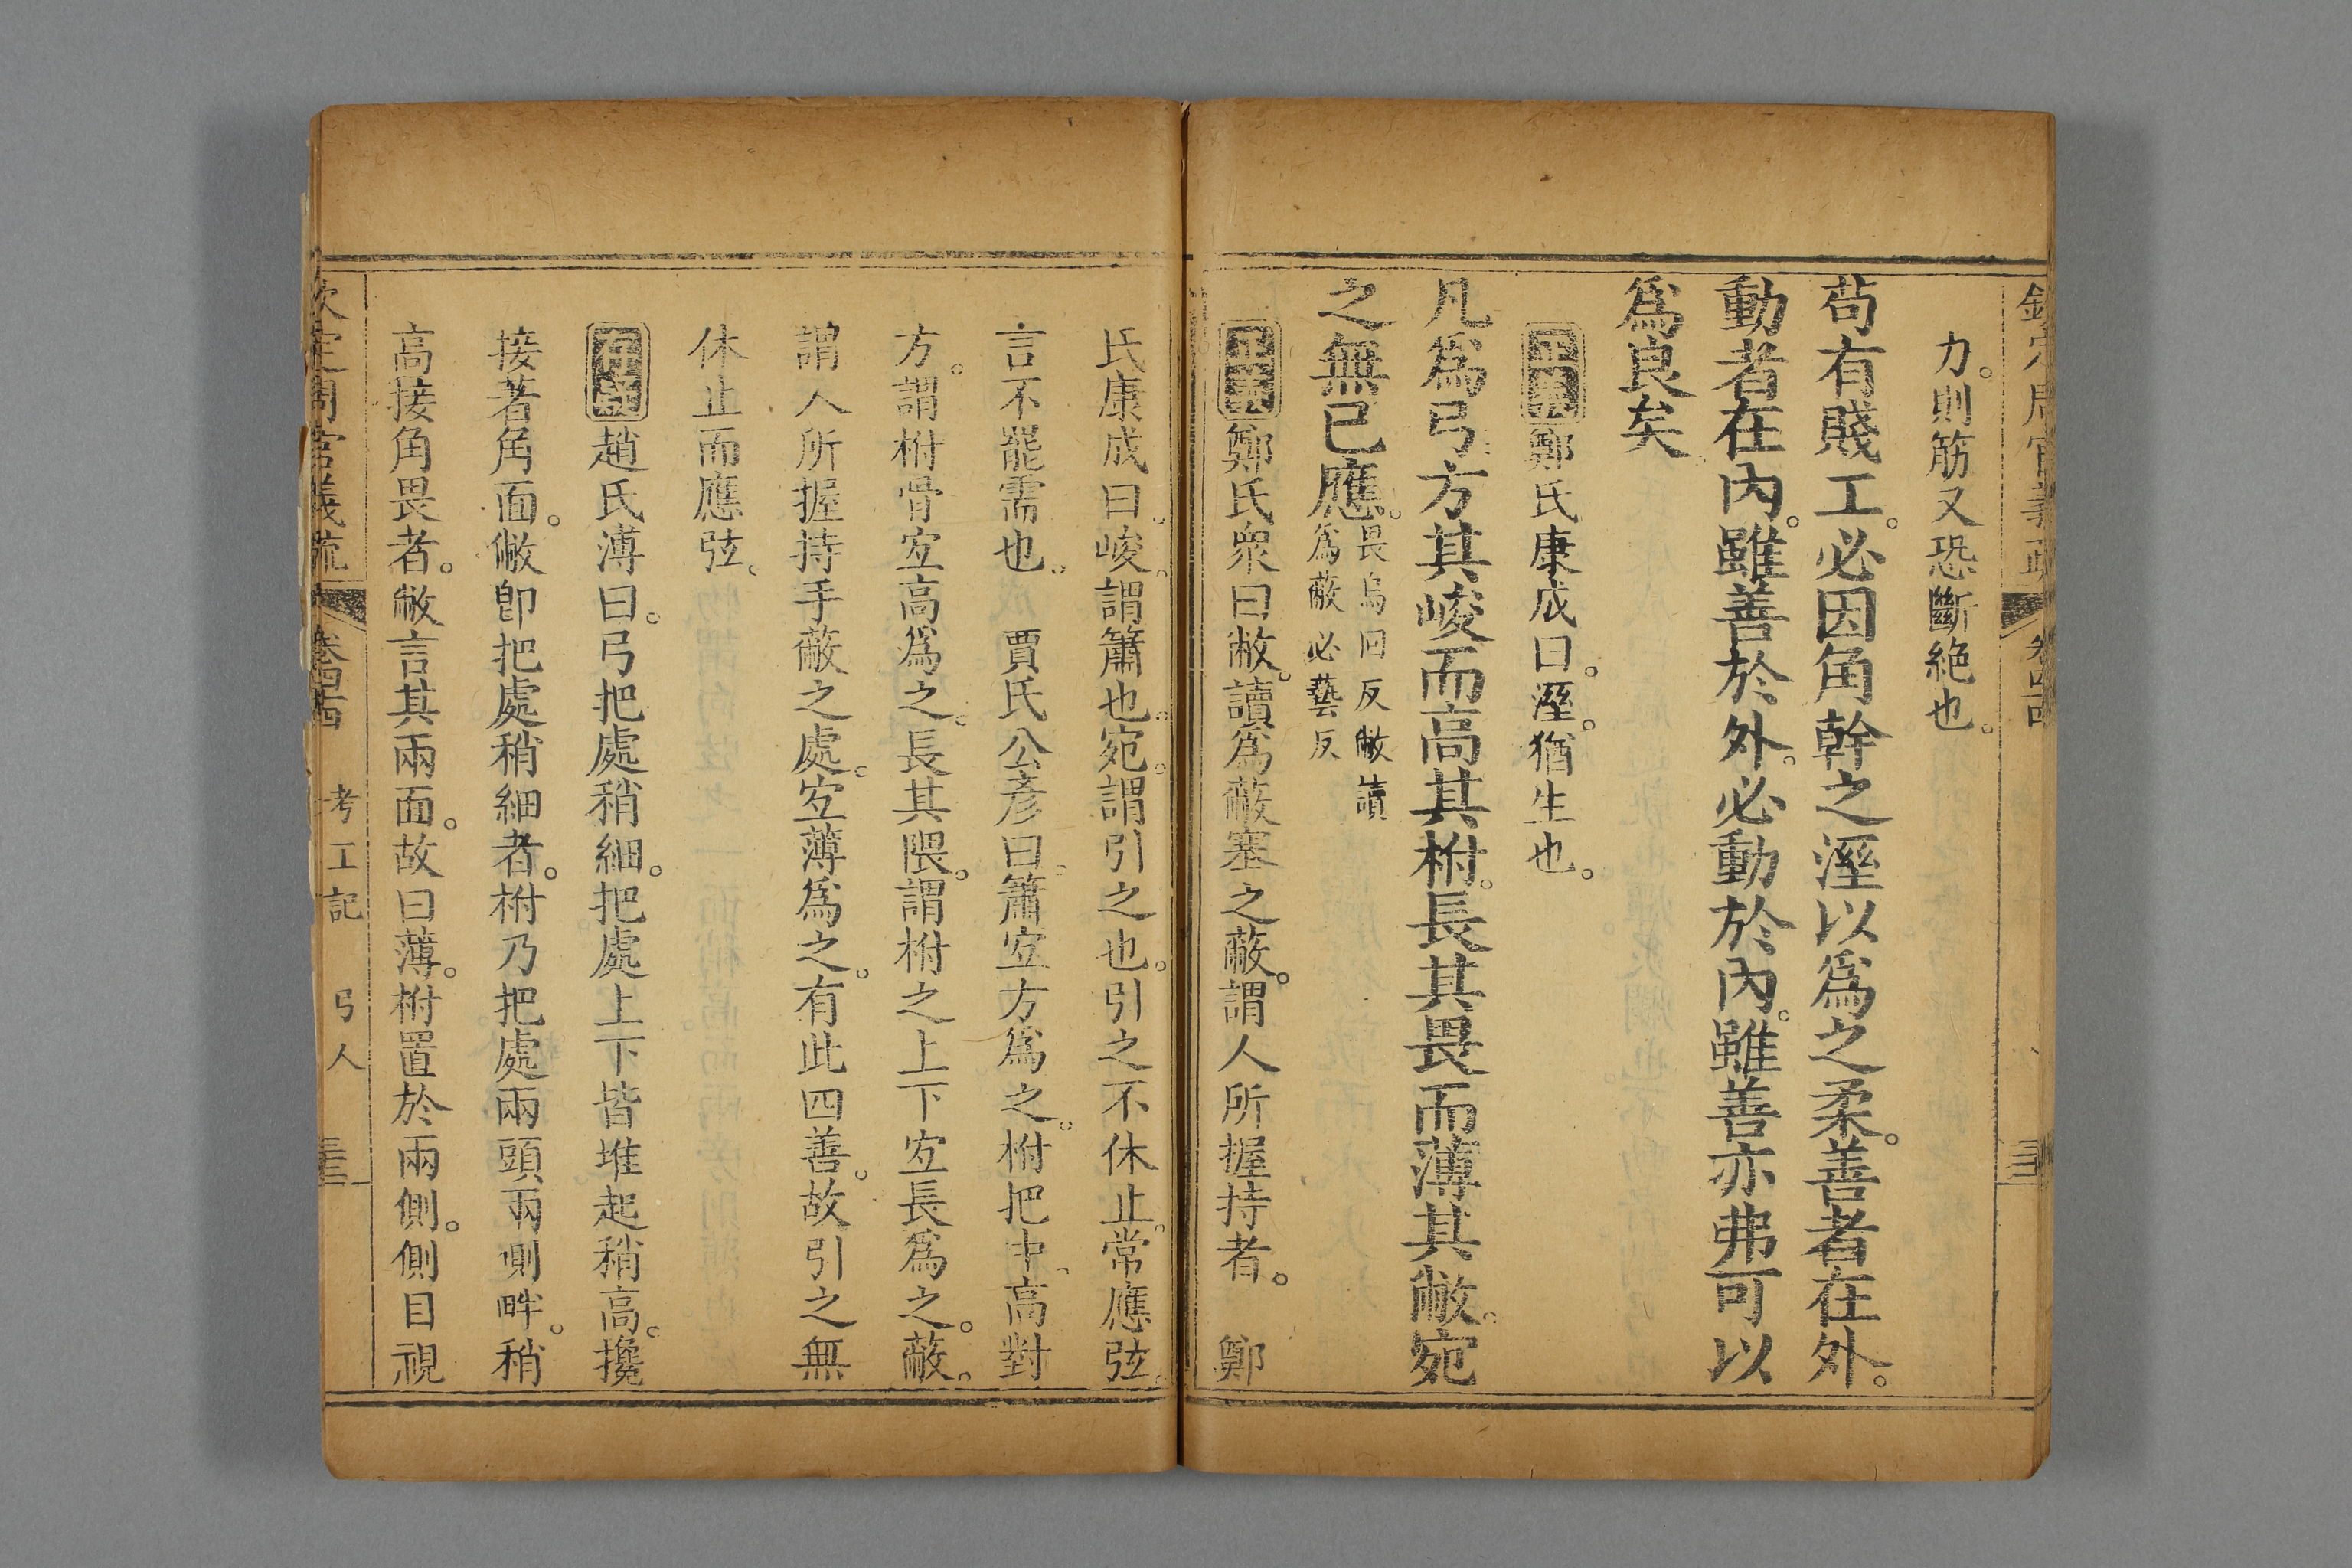 力。則筋又恐斷絶也。
苟有賤工。必因角幹之溼以爲之柔。善者在外。
動者在內。雖善於外。必動於內。雖善亦弗可以
爲良矣
正義鄭氏康成曰。溼。猶生也。
凡爲弓方其峻而高其柎。長其畏而薄其敝。宛
之無已應。畏烏回反敝讀
爲蔽必藝反
正義鄭氏衆曰敝。讀爲蔽塞之蔽。謂人所握持者。 鄭
氏康成曰。峻。謂簫也。宛。謂引之也。引之不休止。常應弦。
言不罷需也。 賈氏公彥曰。簫宐方爲之。柎把中。高對
方。謂柎骨宐高爲之。長其隈。謂柎之上下宐長爲之。蔽。
謂人所握持手蔽之處。宐薄爲之。有此四善。故引之無
休止而應弦。
存疑趙氏溥曰。弓把處稍細。把處上下皆堆起稍高。攙
接著角面。敝卽把處稍細者。柎乃把處兩頭兩側畔。稍
高接角畏者。敝言其兩面。故曰薄。柎置於兩側。側目視
欽定周官義疏
卷四十四
考工記 弓人
三十三